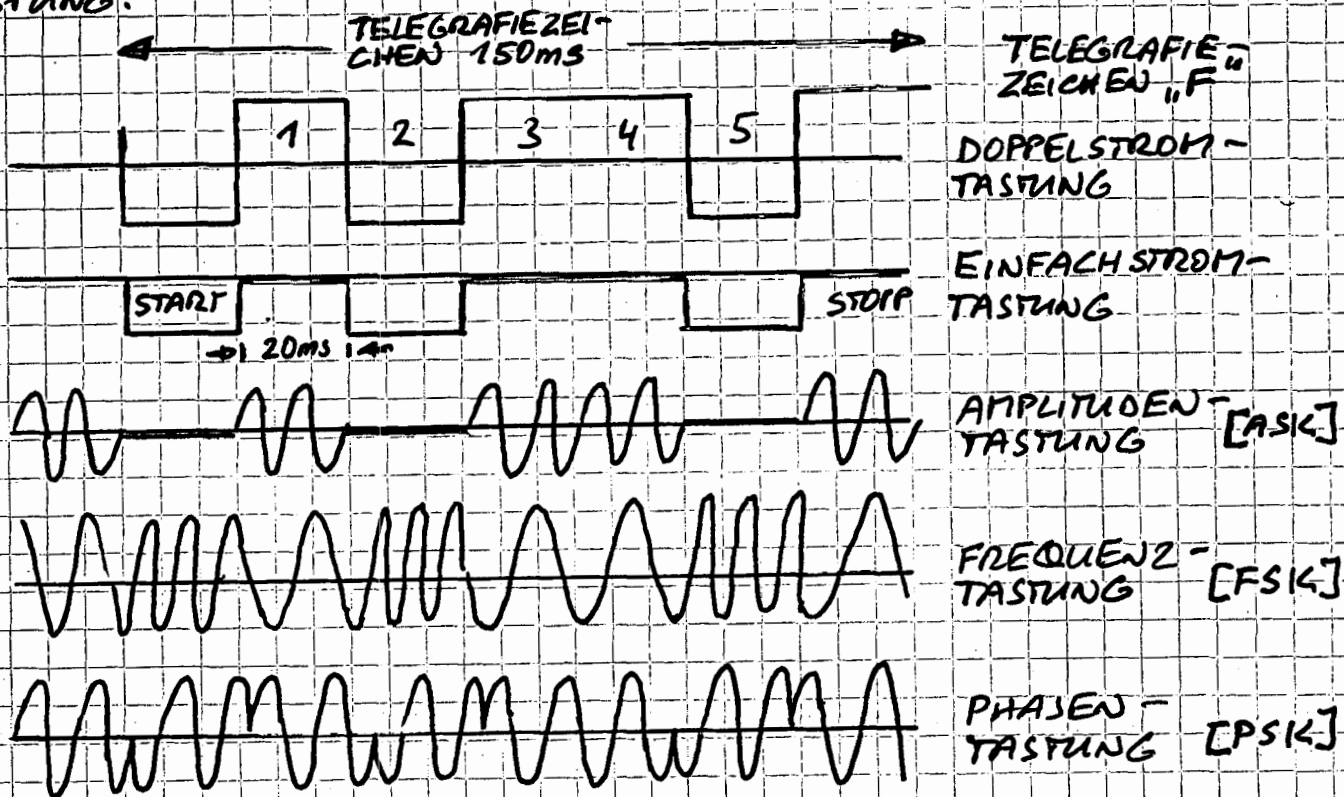 TUNG.
TELEGRAFIEZEI-
CHEN 150ms
TELEGRAFIE-
ZEICHEN „F"
1 2 3 4 5
DOPPELSTROM-
TASTUNG
EINFACHSTROM-
TASTUNG
START
STOPP
20ms
AMPLITUDEN-
TASTUNG [ASK]
FREQUENZ-
TASTUNG [FSK]
PHASEN-
TASTUNG [PSK]